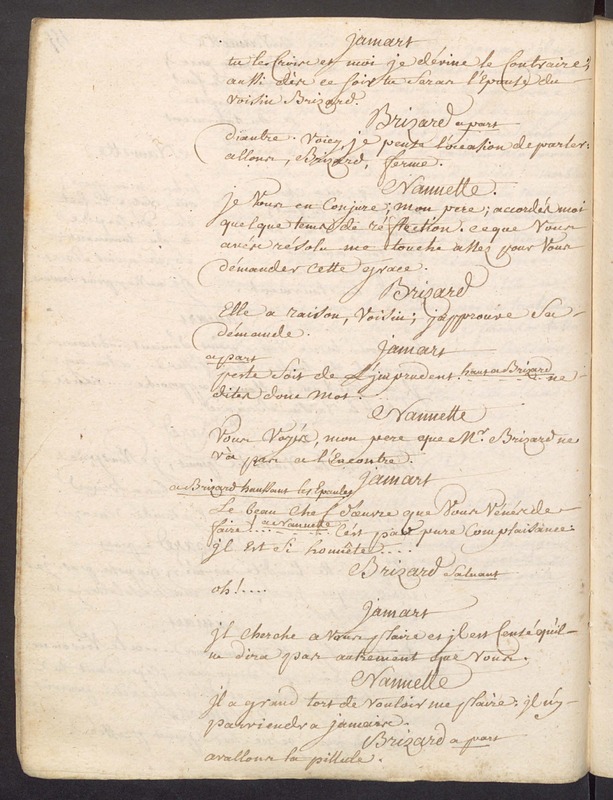 jamart
tu le Crois et moi je dévine le Contraire;
aussi dès ce soir tu seras l'épouse du
voisin Brizard.
Brizard a part
diantre. voicy, je pense l'occasion de parler.
allons, Brizard, ferme.
Nannette.
je vous en Conjure, mon pere; accordés moi
quelque tems de réflection. ce que vous
avés resolu me touche assez pour vous
démander cette grace.
Brizard
Elle a raison, Voisin; j'approuve sa
démande.
jamart
a part
peste soit de L'imprudent. haut a Brizard ne
dites donc mot.
Nannette
Vous Voyés, mon pere que Mr. Brizard ne
va pas a l'Encontre.
jamart
a Brizard haussant les Epaules
Le beau Chef d'œuvre que vous Vénés de
faire! a Nannette C'est par pure Complaisance.
jl Est si honnête....
Brizard saluant
oh!....
jamart
jl cherche a vous plaire et jl est Censé qu'il
ne dira pas autrement que vous.
Nannette
jl a grand tort de vouloir me plaire. jl n'y
parviendra jamais.
Brizard a part
avallons la pillule.